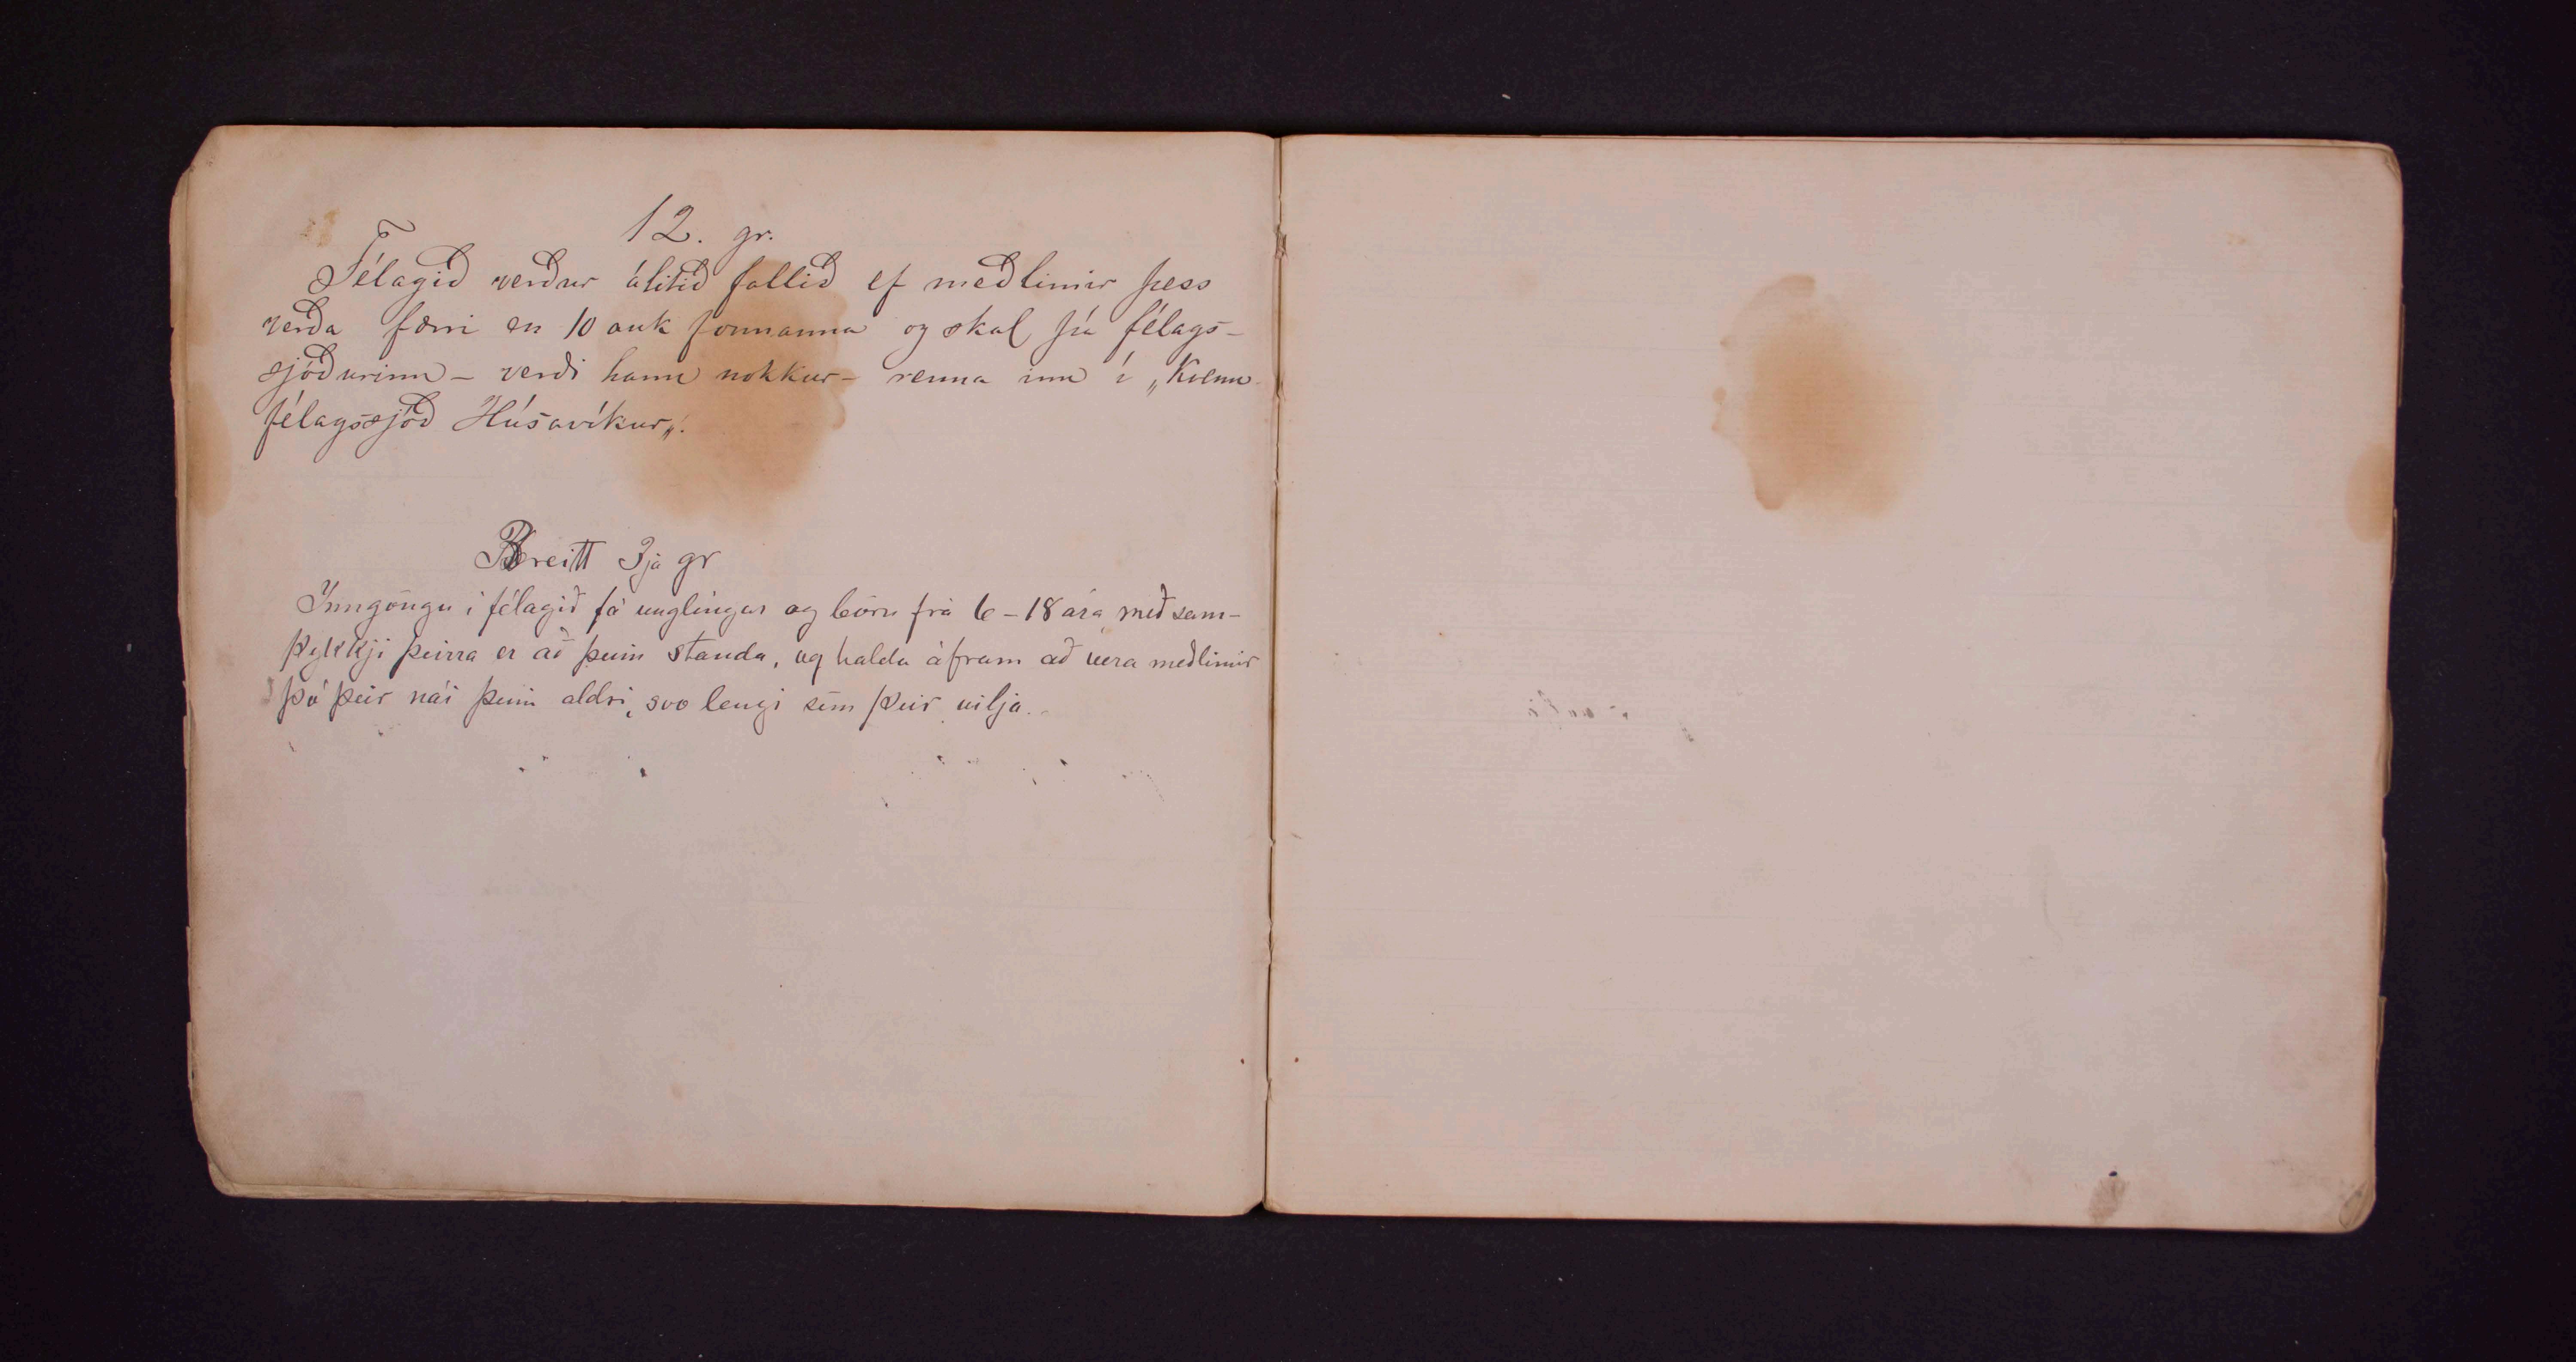 12. gr.
Félagið verður álitið fallið ef meðlimir þess
verða færri en 10 auk formanna og skal þá félags-
sjóðurinn - verði hann nokkur - renna inn í „Kvenn-
félagssjóð Húsavíkur„.
Breitt 3ja gr
Inngöngu i félagið fá unglingar og börn frá 6 - 18 ára, með sam-
þykkji þeirra er að þeim standa, og halda áfram að vera meðlimir
þó þeir nái þeim aldri, svo lengi sem þeir vilja.